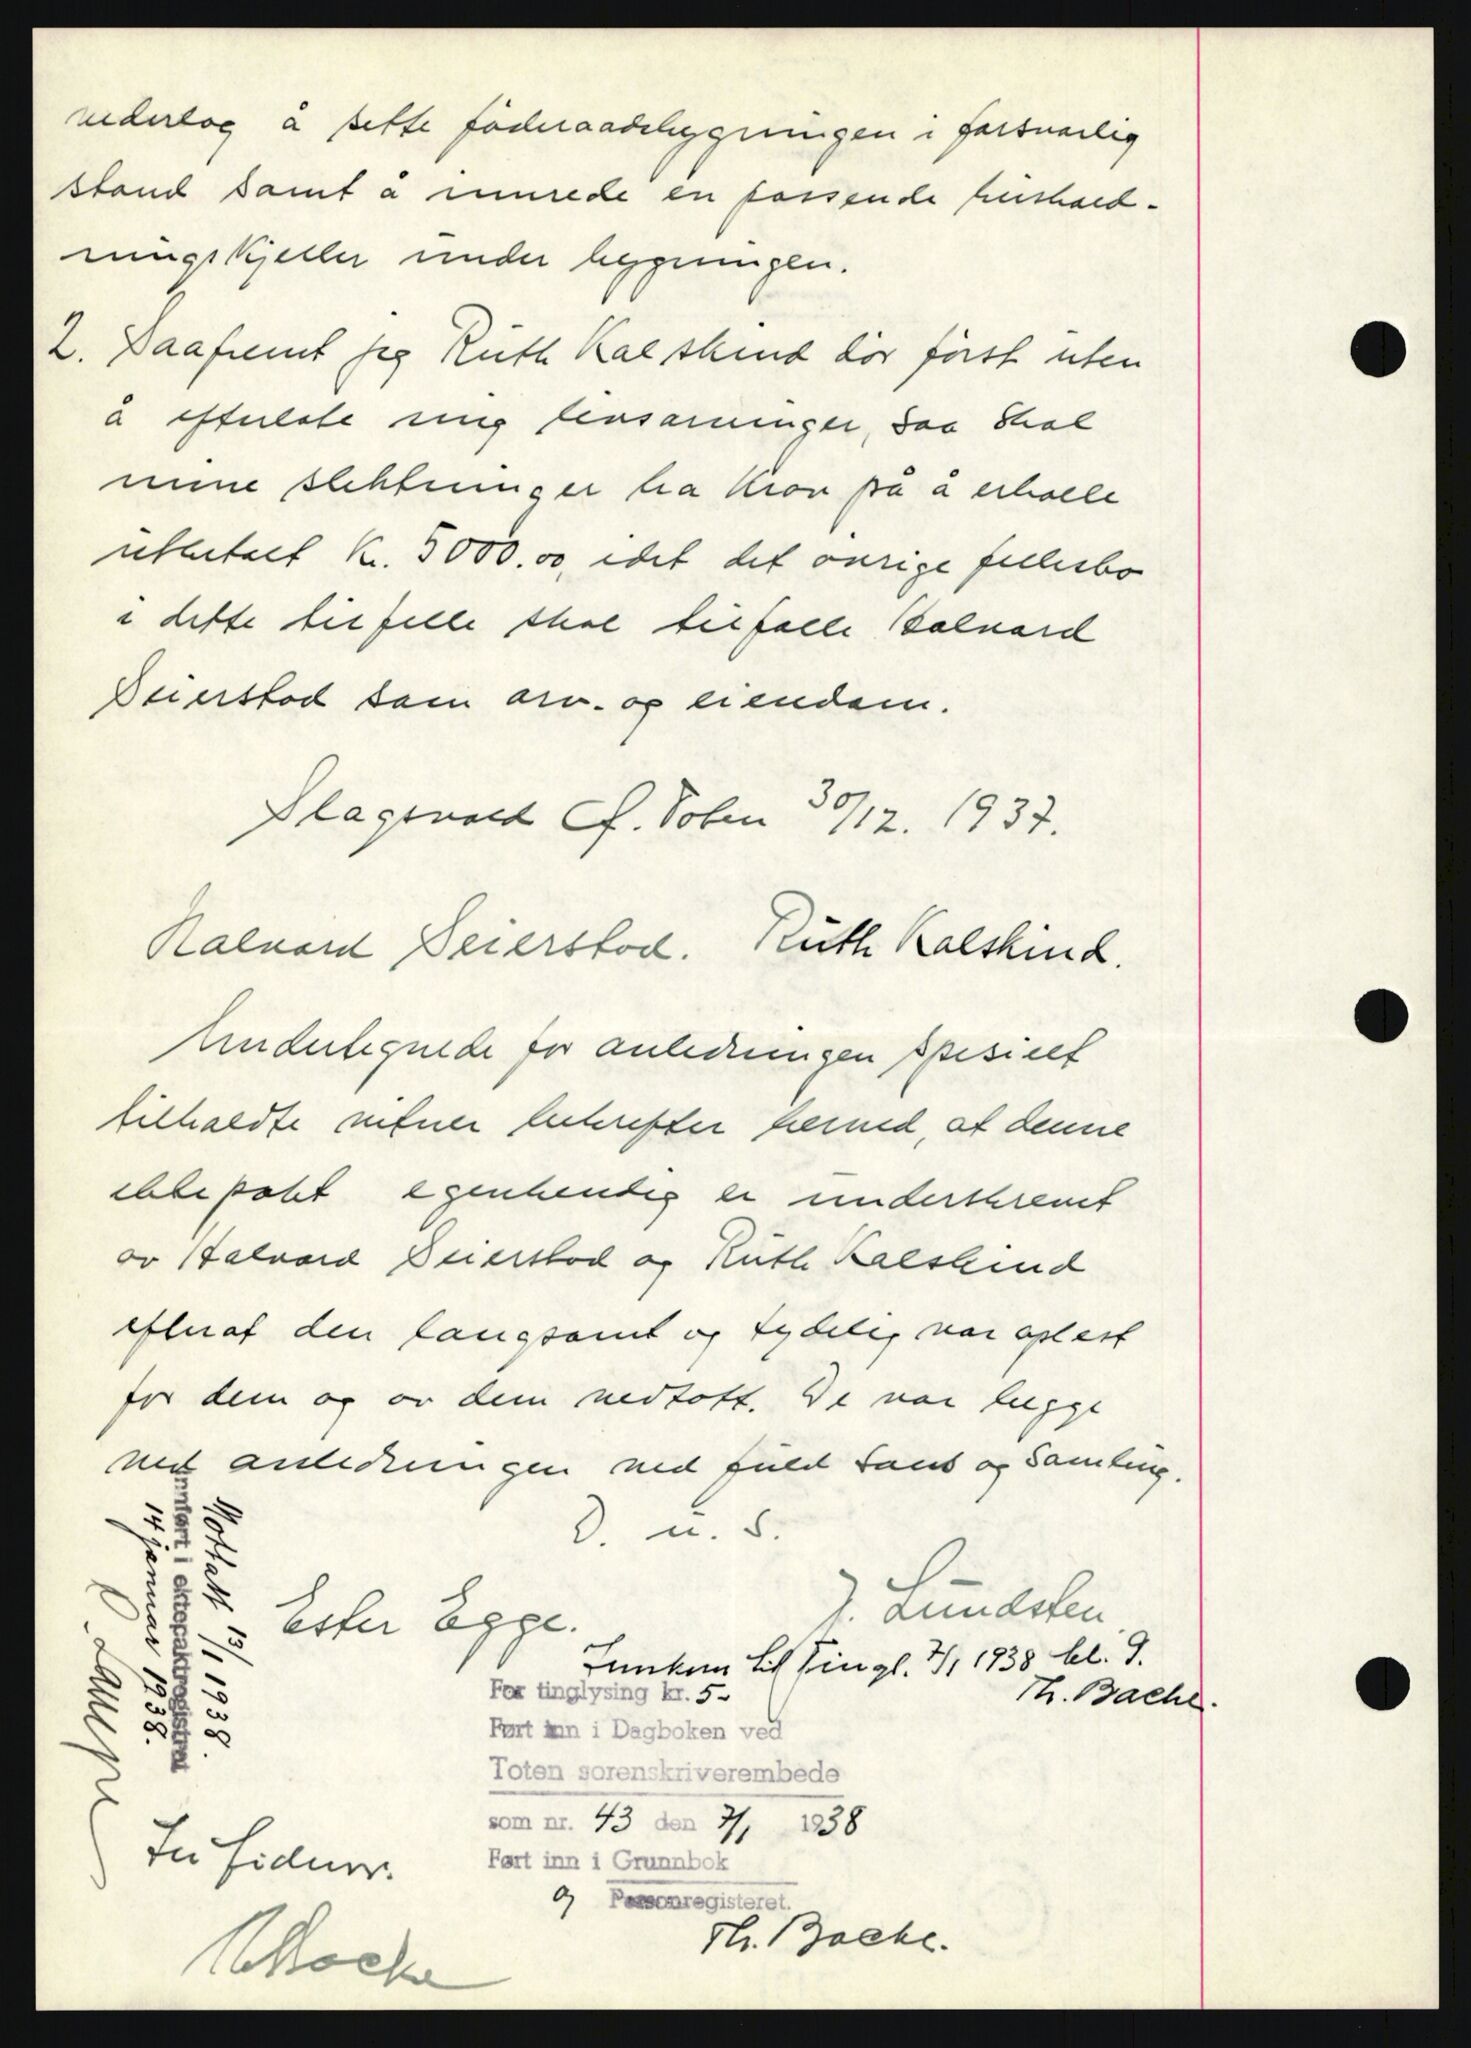 vederlag å sette föderaadsbygningen i forsvarlig
stand samt å innrede en passende hushold-
ningskjeller under bygningen.
2. Saafremt jeg Ruth Kalskind dör först uten
å efterlate mig livsarvinger, saa skal
mine slektninger ha krav på å erholde
utbetalt Kr. 5000.00, idet det övrige fellesbo
i dette tilfelle skal tilfalle Halvard
Seierstad som arv- og eiendom.
Slagsvold Ø. Toten 30/12. 1937.
Halvard Seierstad. Ruth Kalskind.
Undertegnede for anledningen spesielt
tilkaldte vitner bekrefter herved, at denne
ektepakt egenhendig er underskrevet
av Halvard Seierstad og Ruth Kalskind
efterat den langsomt og tydelig var oplest
for dem og av dem vedtatt. De var begge
ved anledningen ved fuld sans og samling.
D. u. s.
Ester Egge. J. Lundsten.
Innkom til Tingl. 7/1 1938 kl. 9.
Th. Bache.
For tinglysing kr. 5-
Ført inn i Dagboken ved
Toten sorenskriverembede
som nr. 43 den 7/1 1938
Ført inn i Grunnbok
og Personregisteret.
Th. Bache.
Mottatt 13/1 1938.
Innført i ektepaktregistret
14 januar 1938.